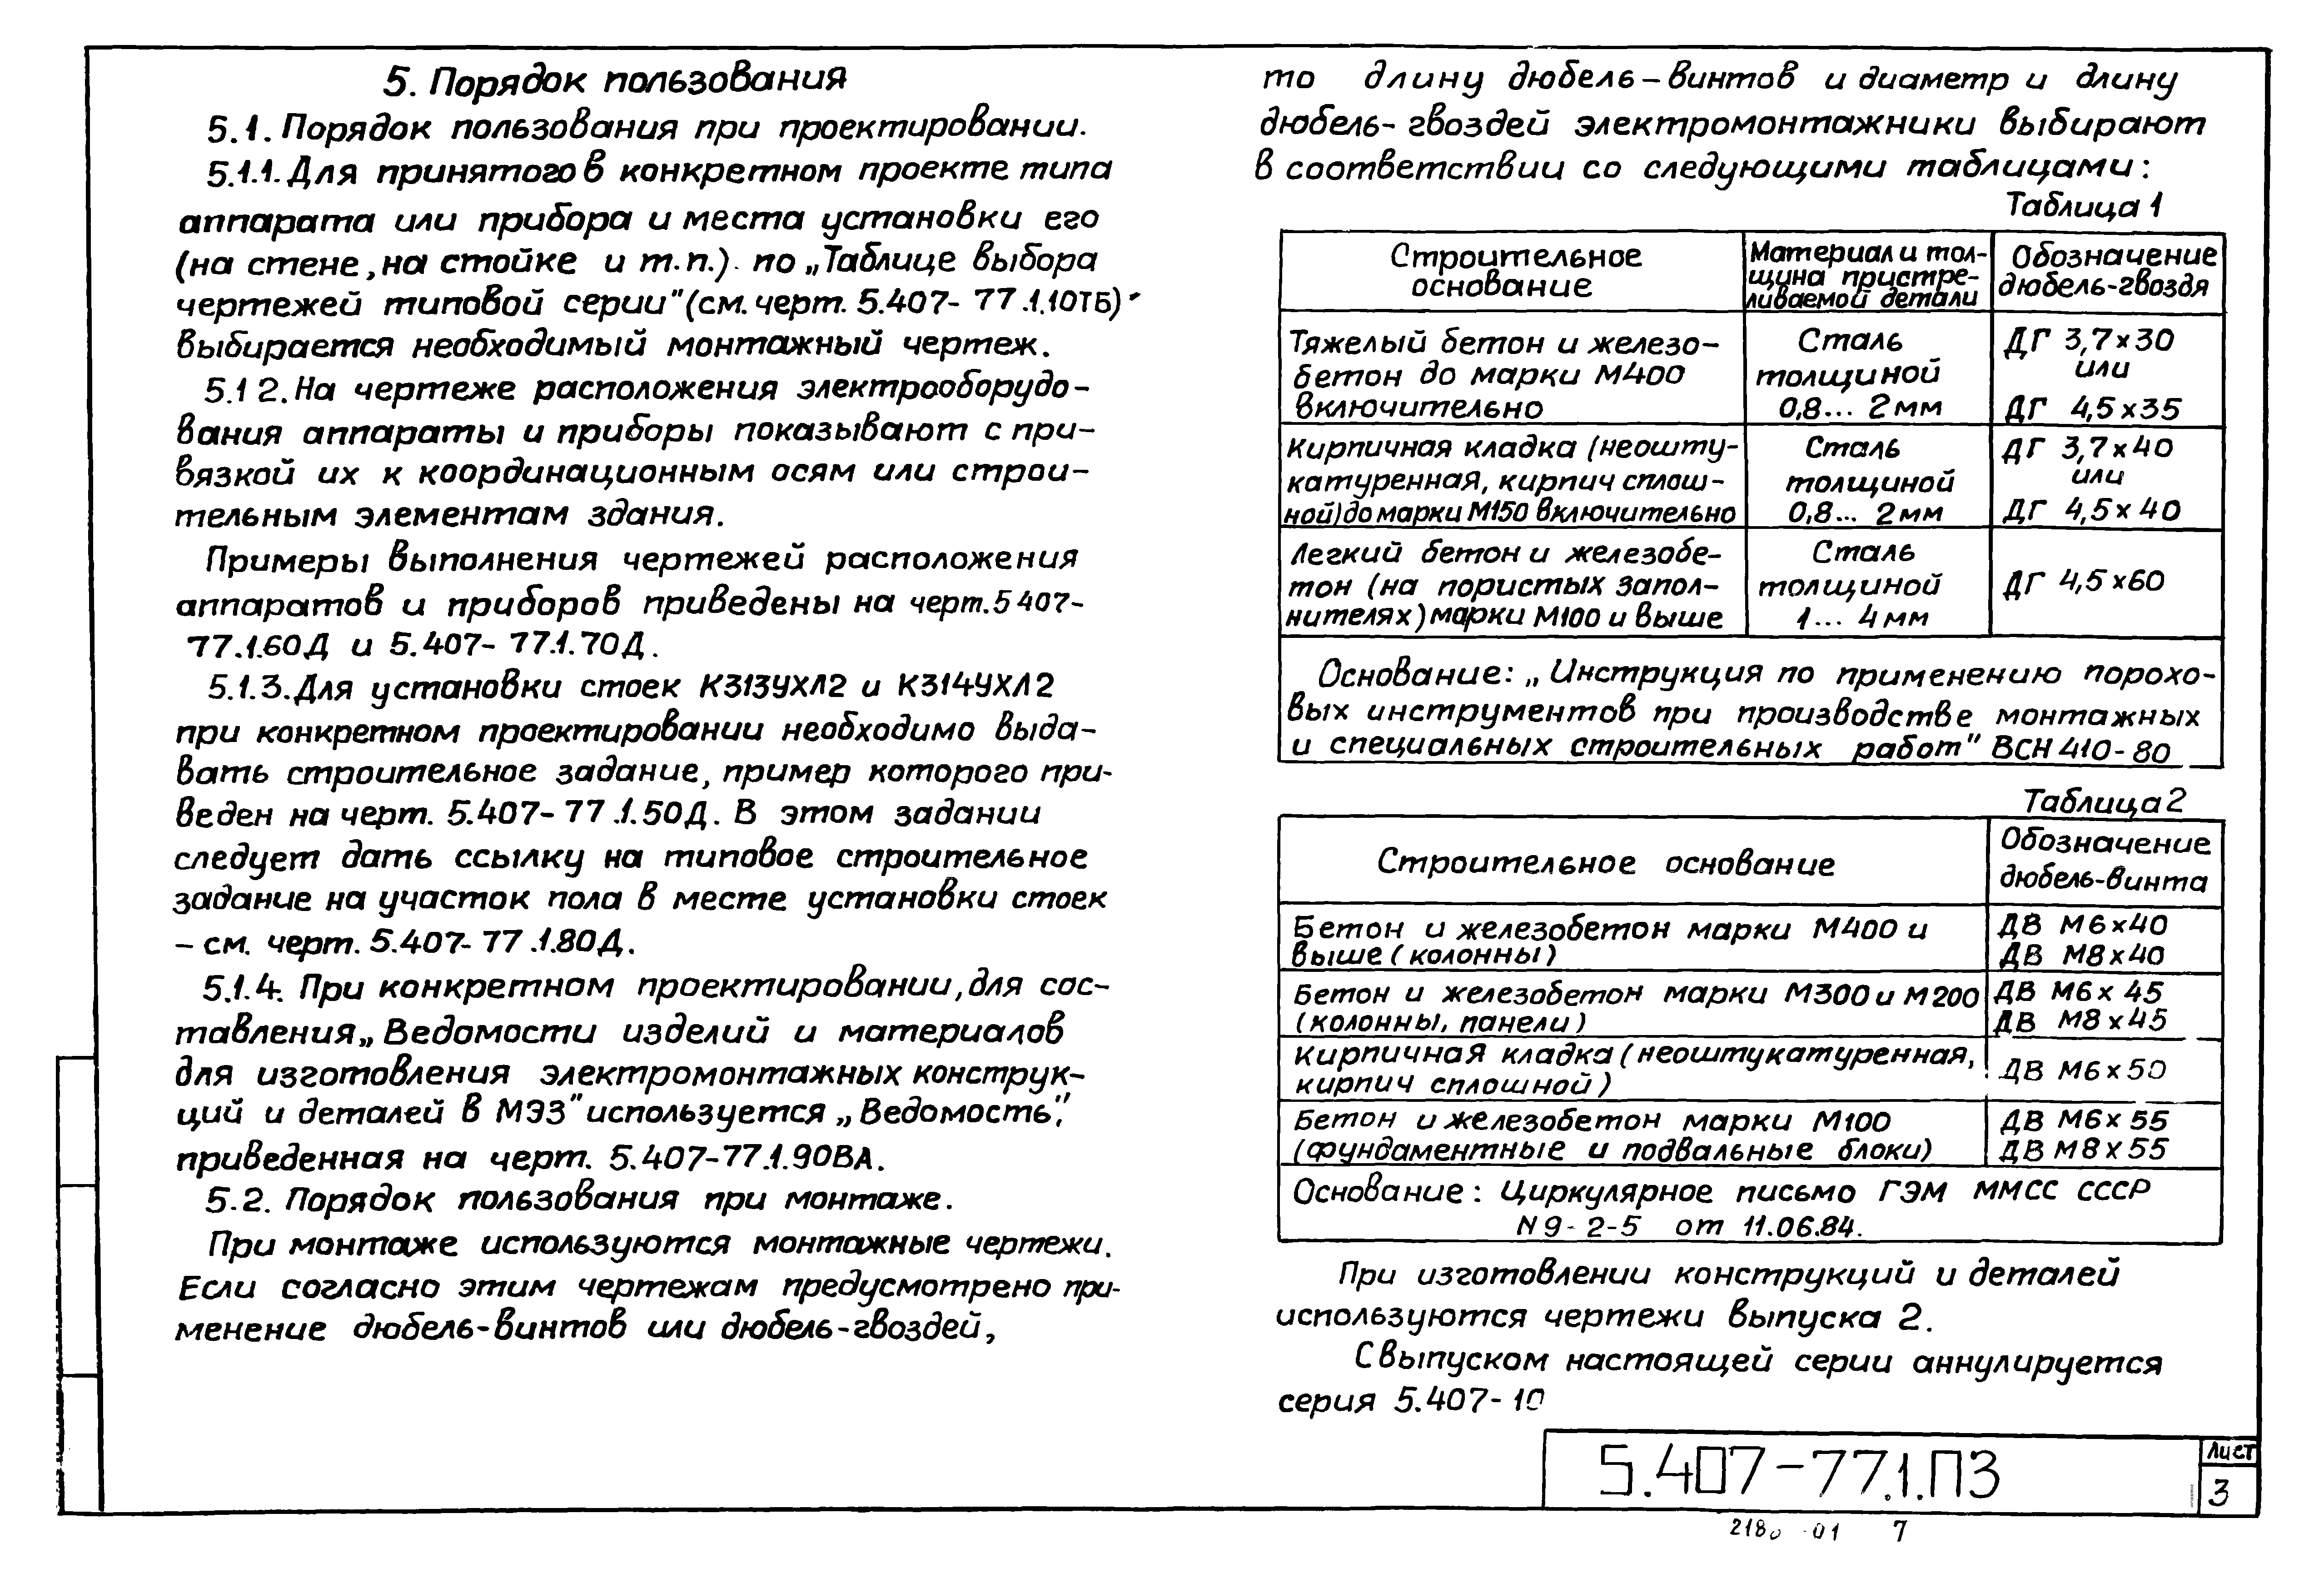 5. Порядок пользования
5.1. Порядок пользования при проектировании.
5.1.1. Для принятого в конкретном проекте типа
аппарата или прибора и места установки его
(на стене, на стойке и т.п.). по „Таблице выбора
чертежей типовой серии" (см. черт. 5.407-77.1.10ТБ)
выбирается необходимый монтажный чертеж.
5.1 2. На чертеже расположения электрооборудо-
вания аппараты и приборы показывают с при-
вязкой их к координационным осям или строи-
тельным элементам здания.
Примеры выполнения чертежей расположения
аппаратов и приборов приведены на черт. 5 407-
77.1.60Д и 5.407-77.1.70Д.
5.1.3. Для установки стоек К313УХЛ2 и К314УХЛ2
при конкретном проектировании необходимо выда-
вать строительное задание, пример которого при-
веден на черт. 5.407-77.1.50Д. В этом задании
следует дать ссылку на типовое строительное
задание на участок пола в месте установки стоек
- см. черт. 5.407-77.1.80Д.
5.1.4. При конкретном проектировании, для сос-
тавления „Ведомости изделий и материалов
для изготовления электромонтажных конструк-
ций и деталей в МЭЗ" используется „Ведомость",
приведенная на черт. 5.407-77.1.90ВА.
5.2. Порядок пользования при монтаже.
При монтаже используются монтажные чертежи.
Если согласно этим чертежам предусмотрено при-
менение дюбель-винтов или дюбель-гвоздей,
то длину дюбель-винтов и диаметр и длину
дюбель-гвоздей электромонтажники выбирают
в соответствии со следующими таблицами:
Таблица 1
Строительное
основание
Материал и тол-
щина пристре-
ливаемой детали
Обозначение
дюбель-гвоздя
Тяжелый бетон и железо-
бетон до марки М400
включительно
Сталь
толщиной
0,8... 2 мм
ДГ 3,7х30
или
ДГ 4,5х35
Кирпичная кладка (неошту-
катуренная, кирпич сплош-
ной) до марки М150 включительно
Сталь
толщиной
0,8... 2 мм
ДГ 3,7х40
или
ДГ 4,5х40
Легкий бетон и железобе-
тон (на пористых запол-
нителях) марки М100 и выше
Сталь
толщиной
1... 4 мм
ДГ 4,5х60
Основание: „Инструкция по применению порохо-
вых инструментов при производстве монтажных
и специальных строительных работ" ВСН 410-80
Таблица 2
Строительное основание
Обозначение
дюбель-винта
Бетон и железобетон марки М400 и
выше (колонны)
ДВ М6х40
ДВ М8х40
Бетон и железобетон марки М300 и М200
(колонны, панели)
ДВ М6х45
ДВ М8х45
Кирпичная кладка (неоштукатуренная,
кирпич сплошной)
ДВ М6х50
Бетон и железобетон марки М100
(фундаментные и подвальные блоки)
ДВ М6х55
ДВ М8х55
Основание: Циркулярное письмо ГЭМ ММСС СССР
N 9-2-5 от 11.06.84.
При изготовлении конструкций и деталей
используются чертежи выпуска 2.
С выпуском настоящей серии аннулируется
серия 5.407-10
5.407-77.1.ПЗ
Лист
3
01 7